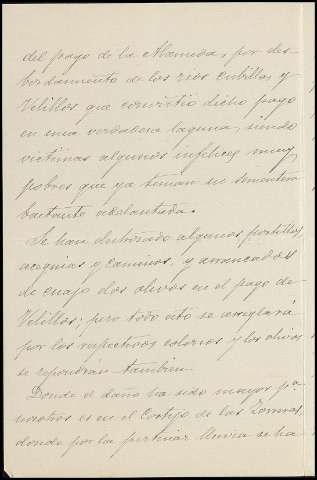 del pago de la Alameda, por des-
bordamiento de los rios Cubillas y
Velillos que convirtió dicho pago
en una verdadera laguna, siendo
victimas algunos infelices muy
pobres que ya tenian su sementera
bastante adelantada.
Se han destrozado algunos portillos,
acequias y caminos, y arrancados
de cuajo dos olivos en el pago de
Velillos; pero todo esto se arreglará
por los respectivos colonos y los olivos
se repondrán tambien.
Donde el daño ha sido mayor pª
nosotros es en el Cortijo de las Zorreras,
donde por la pertinaz lluvia se ha